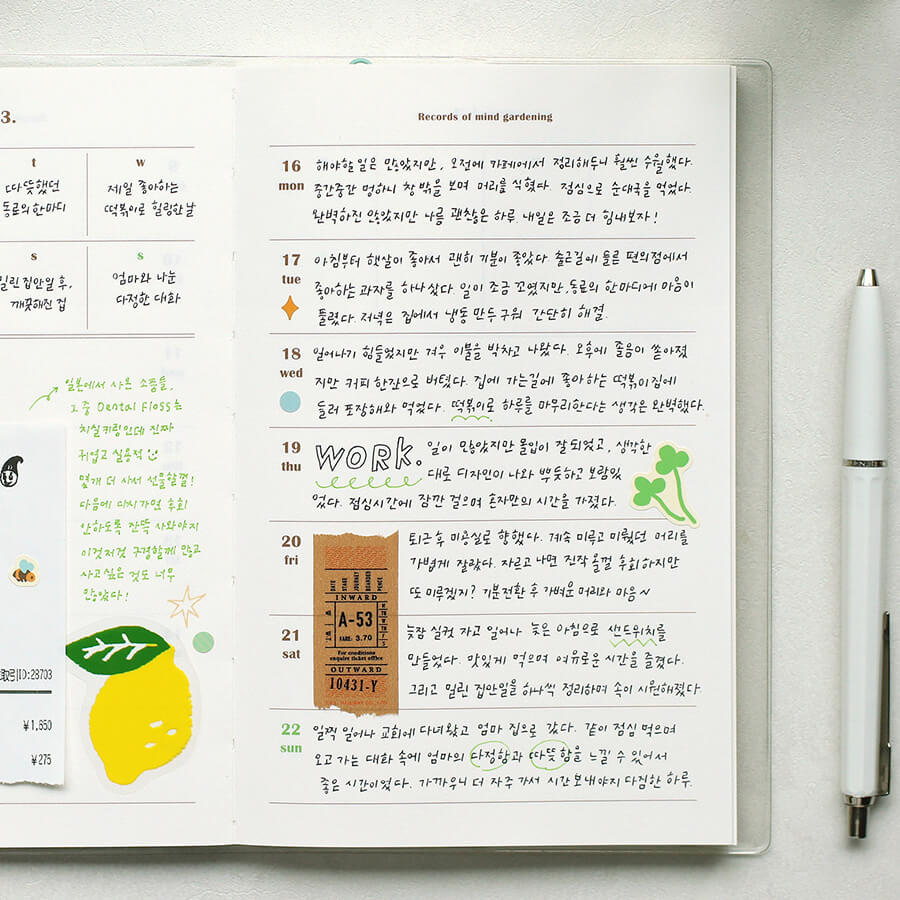 3.
t
w
따뜻했던
동료의 한마디
제일 좋아하는
떡볶이로 힐링한 날
s
s
밀린 집안일 후,
깨끗해진 집
엄마와 나눈
다정한 대화
일본에서 사온 소품들,
그 중 Dental Floss는
치실키링인데 진짜
귀엽고 실용적
몇개 더 사서 선물할걸!
다음에 다시가면 후회
안하도록 잔뜩 사와야지
이것저것 구경할게 많고
사고싶은 것도 너무
많았다!
ID:28703
¥1,650
¥275
Records of mind gardening
16
mon
해야할 일은 많았지만, 오전에 카페에서 정리해두니 훨씬 수월했다.
중간중간 멍하니 창 밖을 보며 머리를 식혔다. 점심으로 순대국을 먹었다.
완벽하진 않았지만 나름 괜찮은 하루 내일은 조금 더 힘내보자!
17
tue
아침부터 햇살이 좋아서 괜히 기분이 좋았다 출근길에 들른 편의점에서
좋아하는 과자를 하나 샀다. 일이 조금 꼬였지만, 동료의 한마디에 마음이
풀렸다. 저녁은 집에서 냉동만두 구워 간단히 해결.
18
wed
일어나기 힘들었지만 겨우 이불을 박차고 나왔다. 오후에 졸음이 쏟아졌
지만 커피 한잔으로 버텼다. 집에 가는길에 좋아하는 떡볶이집에
들러 포장해와 먹었다. 떡볶이로 하루를 마무리한다는 생각은 완벽했다.
19
thu
WORK. 일이 많았지만 몰입이 잘 되었고, 생각한
대로 디자인이 나와 뿌듯하고 보람있
었다. 점심시간에 잠깐 걸으며 혼자만의 시간을 가졌다.
20
fri
퇴근 후 미용실로 향했다. 계속 미루고 미뤘던 머리를
가볍게 잘랐다. 자르고 나면 진작 올걸 후회하지만
또 미루겠지? 기분전환 후 가벼운 머리와 마음~
DATE
STAGE
JOURNEY
BOARDED
PENCE
INWARD
A-53
FARE: 3.70
For conditions
enquire ticket office
OUTWARD
10431-Y
21
sat
늦잠 실컷 자고 일어나 늦은 아침으로 샌드위치를
만들었다. 맛있게 먹으며 여유로운 시간을 즐겼다.
그리고 밀린 집안일을 하나씩 정리하며 속이 시원해졌다.
22
sun
일찍 일어나 교회에 다녀왔고 엄마 집으로 갔다. 같이 점심 먹으며
오고 가는 대화 속에 엄마의 다정함과 따뜻함을 느낄 수 있어서
좋은 시간이었다. 가까우니 더 자주 가서 시간 보내야지 다짐한 하루.